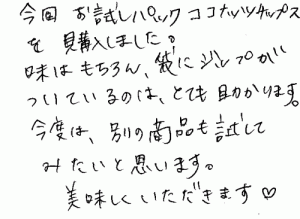 今回 お試しパックココナッツチップス
を購入しました。
味はもちろん、袋にジップが
ついているのは、とても助かります。
今度は、別の商品も試して
みたいと思います。
美味しくいただきます♡